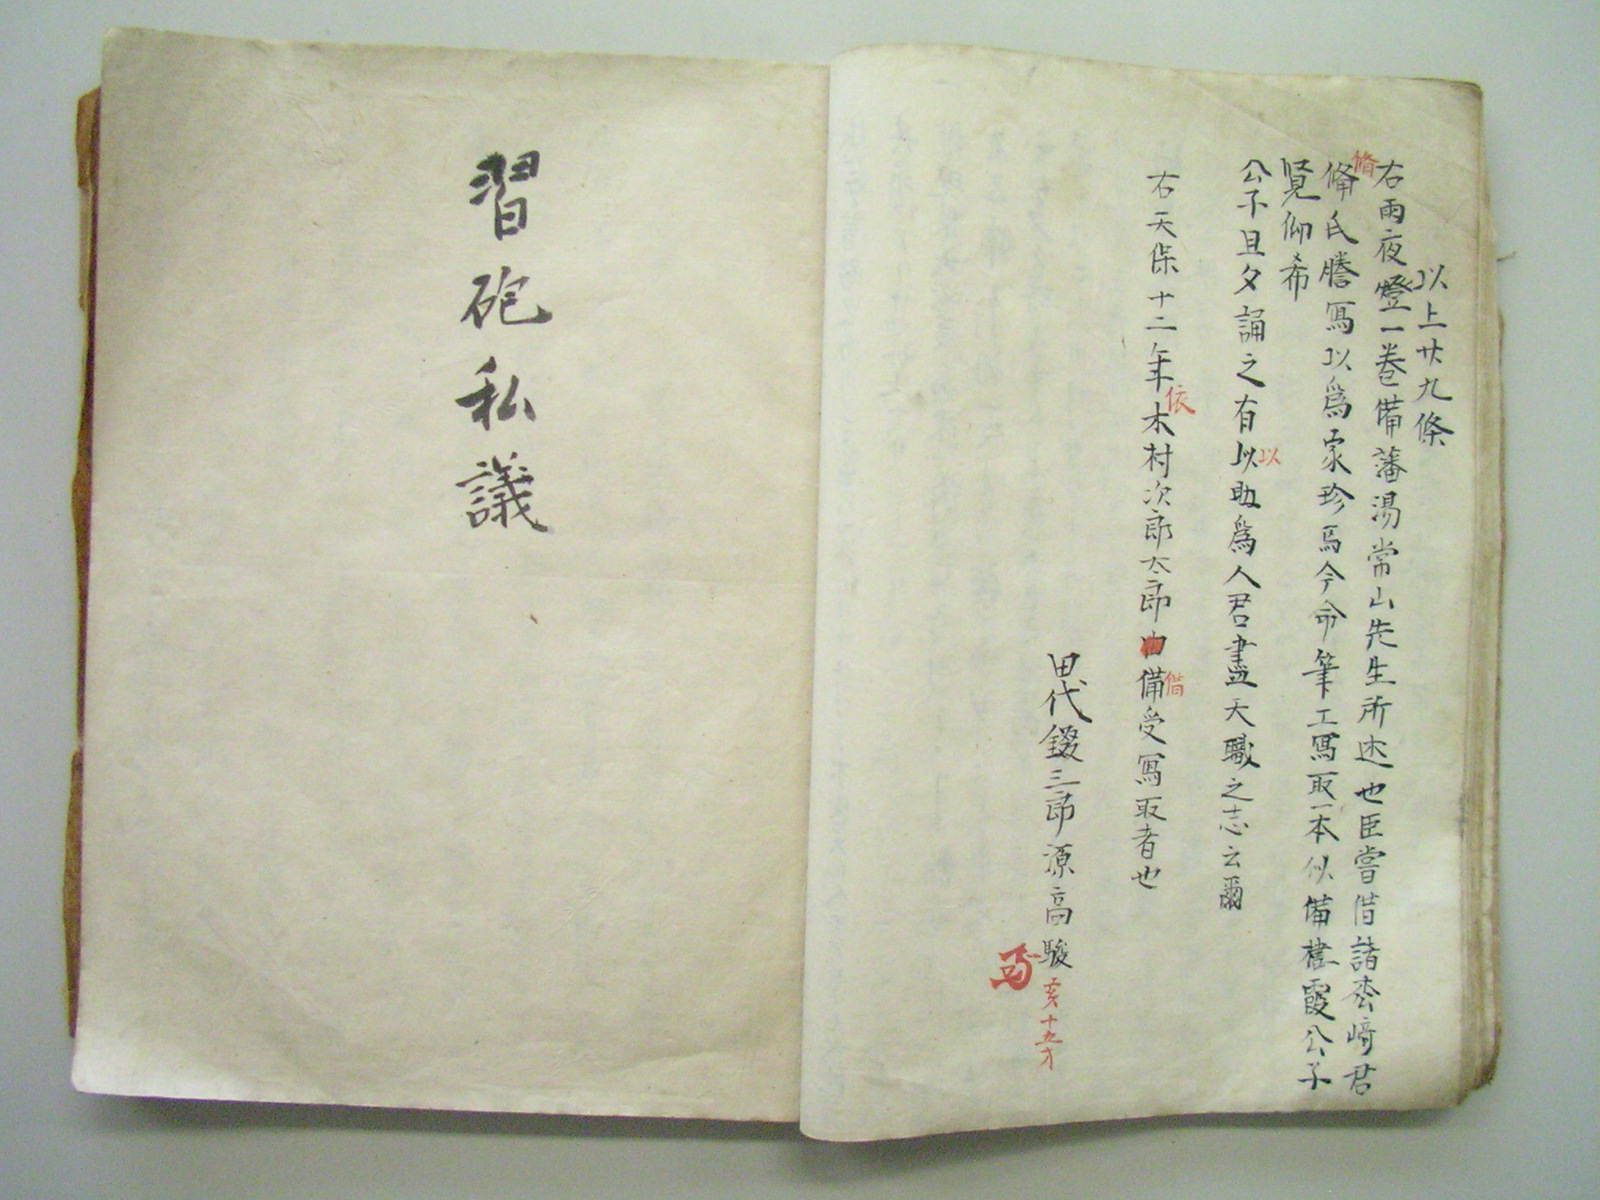 以上廿九條
右雨夜燈一卷備藩湯常山先生所述也臣嘗借諸枩﨑君
脩
脩氏謄寫以爲家珍焉今命筆工寫取一本以備棲霞公子
覽仰希
公子旦夕誦之有以助爲人君盡天職之志云爾
以
右天保十二年木村次郎太郎備受寫取者也
依
借
田代錣三郎源高駿
亥十五才
習砲私議